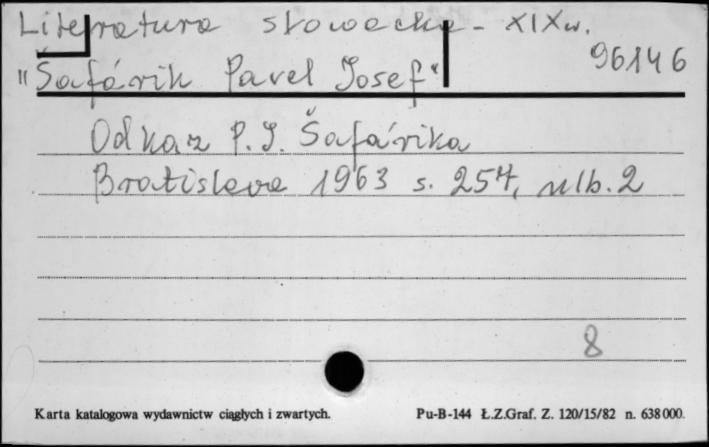 Literatura słowacka - XIX w.
96146
"Šafárik Pavel Josef"
Odkaz P. J. Šafárika
Bratislava 1963 s. 254, nlb. 2
8
Karta katalogowa wydawnictw ciągłych i zwartych.
Pu-B-144 Ł.Z.Graf. Z. 120/15/82 n. 638 000.